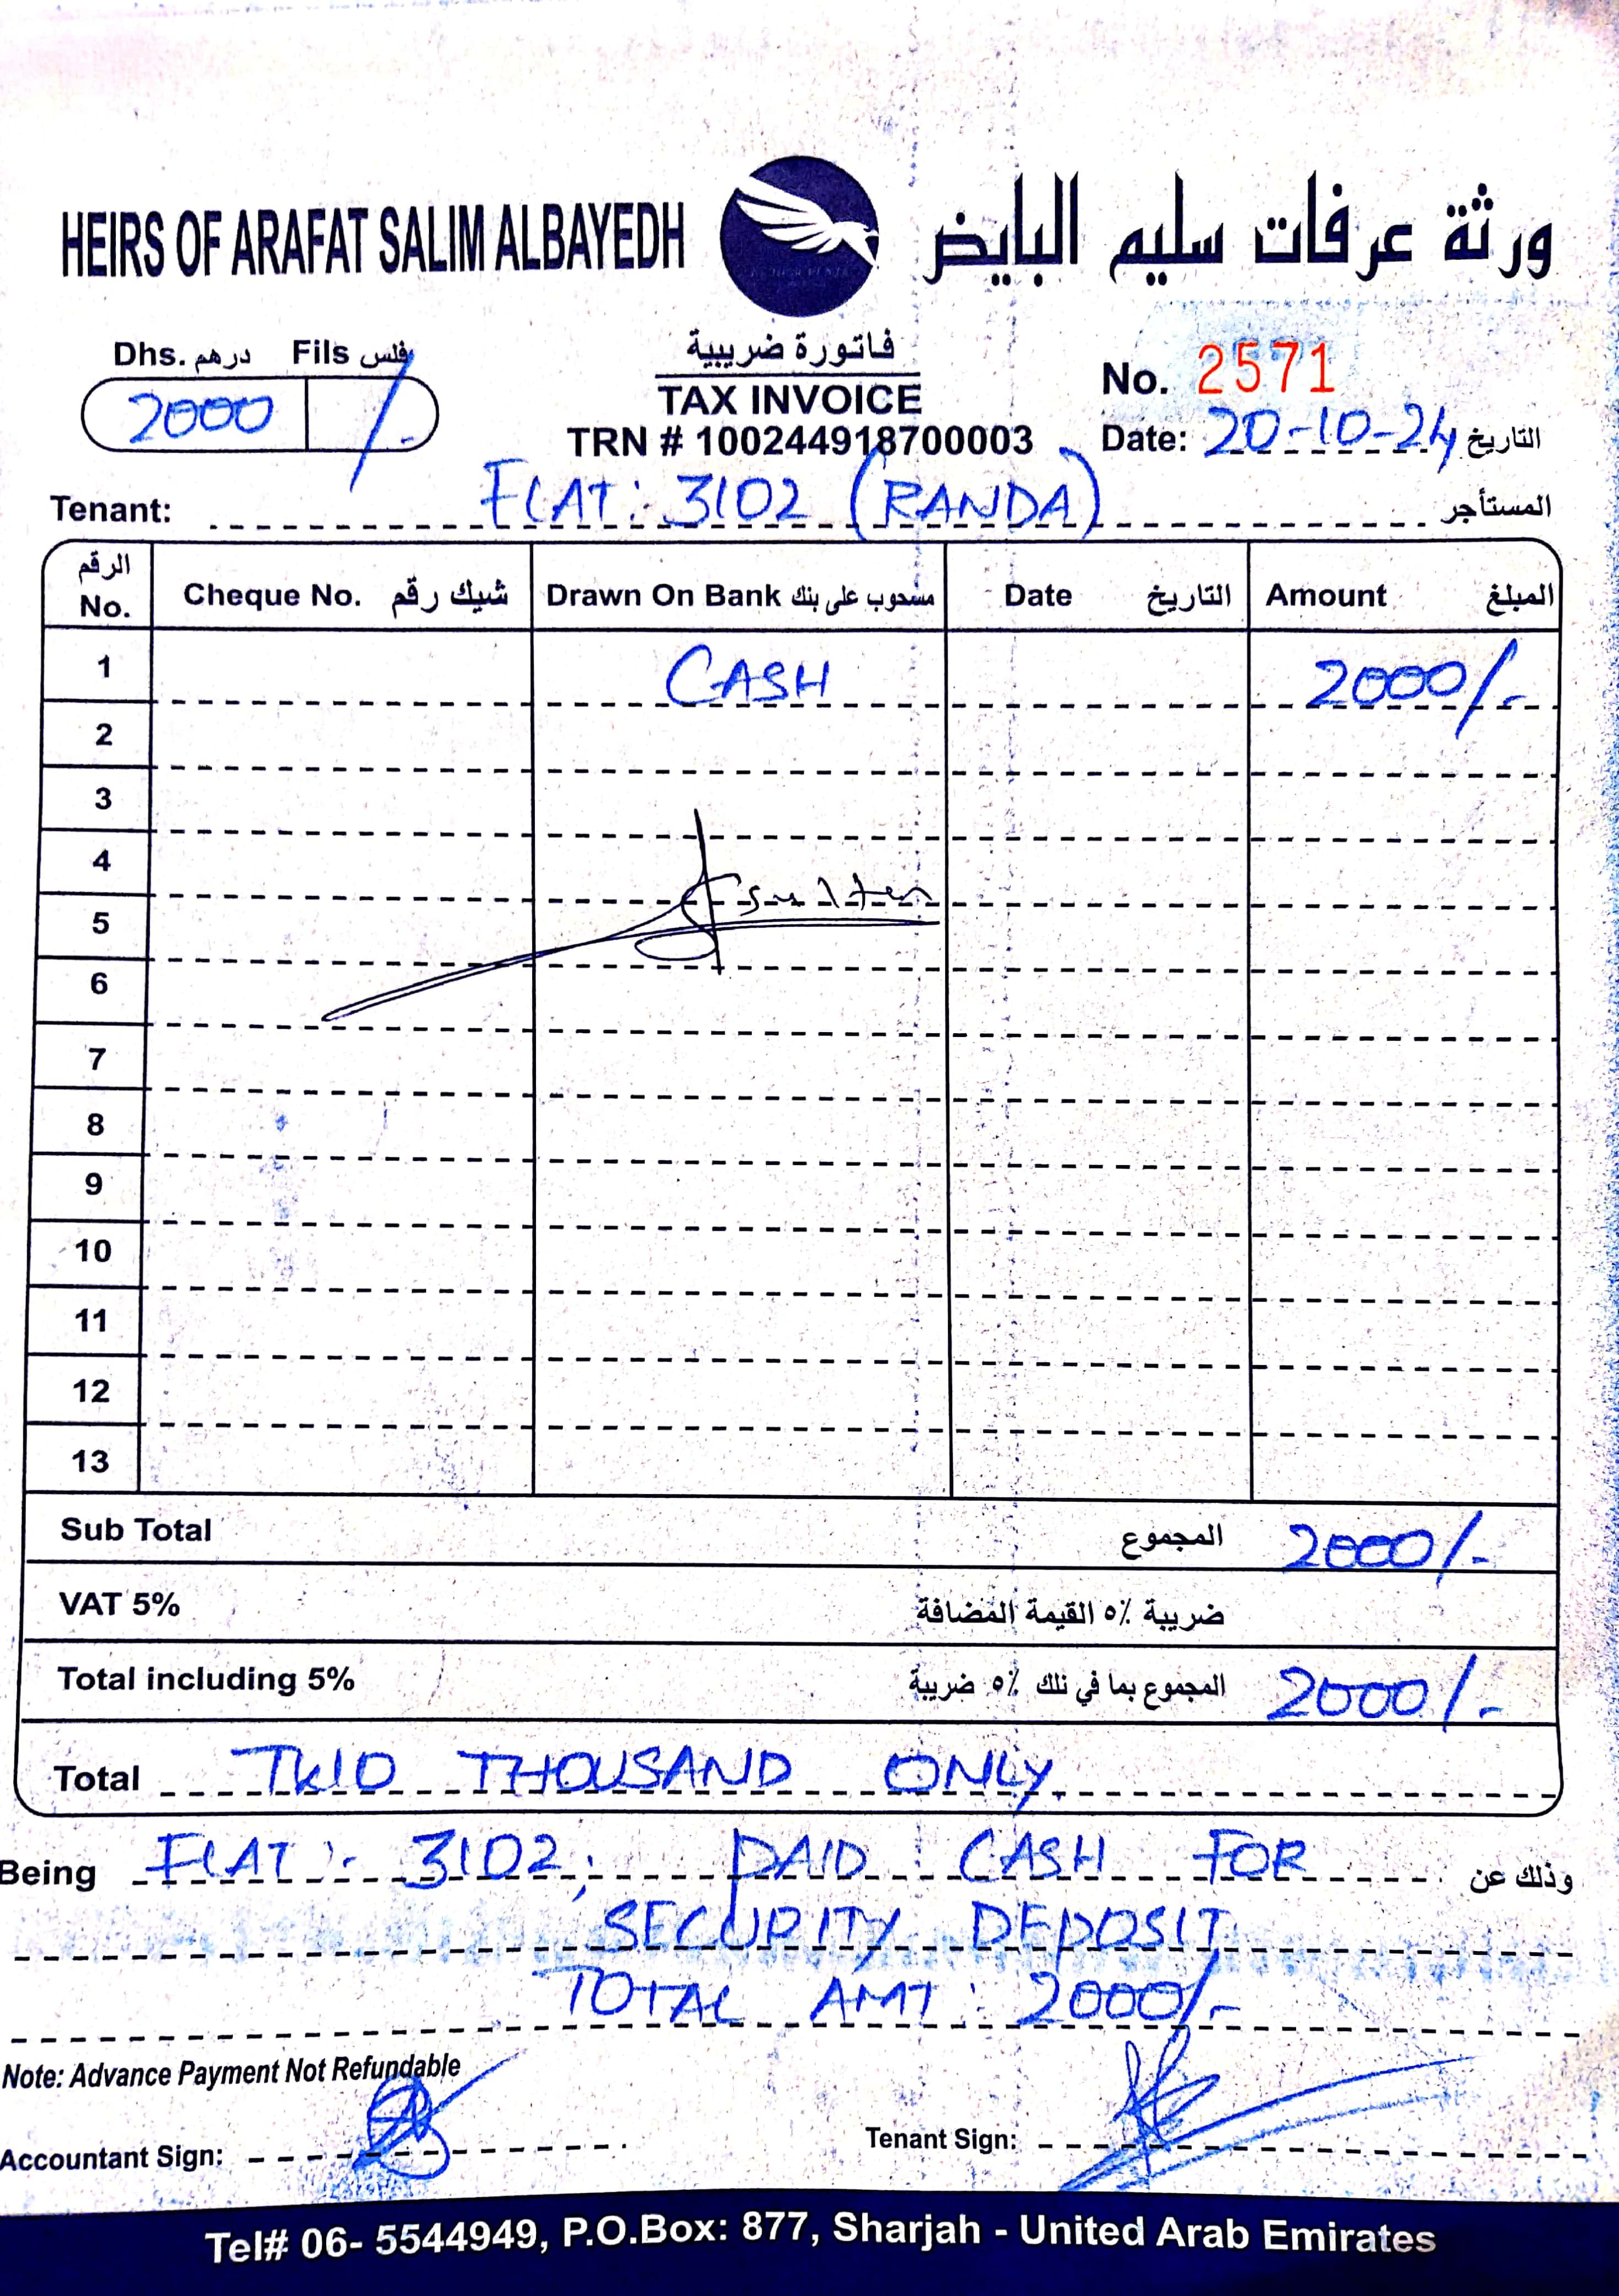 HEIRS OF ARAFAT SALIM ALBAYEDH
ورثة عرفات سليم البايض
Dhs. درهم Fils فلس
2000 /-
فاتورة ضريبية
TAX INVOICE
TRN # 100244918700003
No. 2571
Date: 20-10-24 التاريخ
Tenant: FLAT: 3102 (RANDA) المستأجر
الرقم No. Cheque No. شيك رقم Drawn On Bank مسحوب على بنك Date التاريخ Amount المبلغ
1 CASH 2000/-
2
3
4
5
6
7
8
9
10
11
12
13
Sub Total المجموع 2000/-
VAT 5% ضريبة ٥٪ القيمة المضافة
Total including 5% المجموع بما في ذلك ٥٪ ضريبة 2000/-
Total TWO THOUSAND ONLY
Being FLAT:- 3102, PAID CASH FOR وذلك عن
SECURITY DEPOSIT
TOTAL AMT: 2000/-
Note: Advance Payment Not Refundable
Accountant Sign: Tenant Sign:
Tel# 06- 5544949, P.O.Box: 877, Sharjah - United Arab Emirates